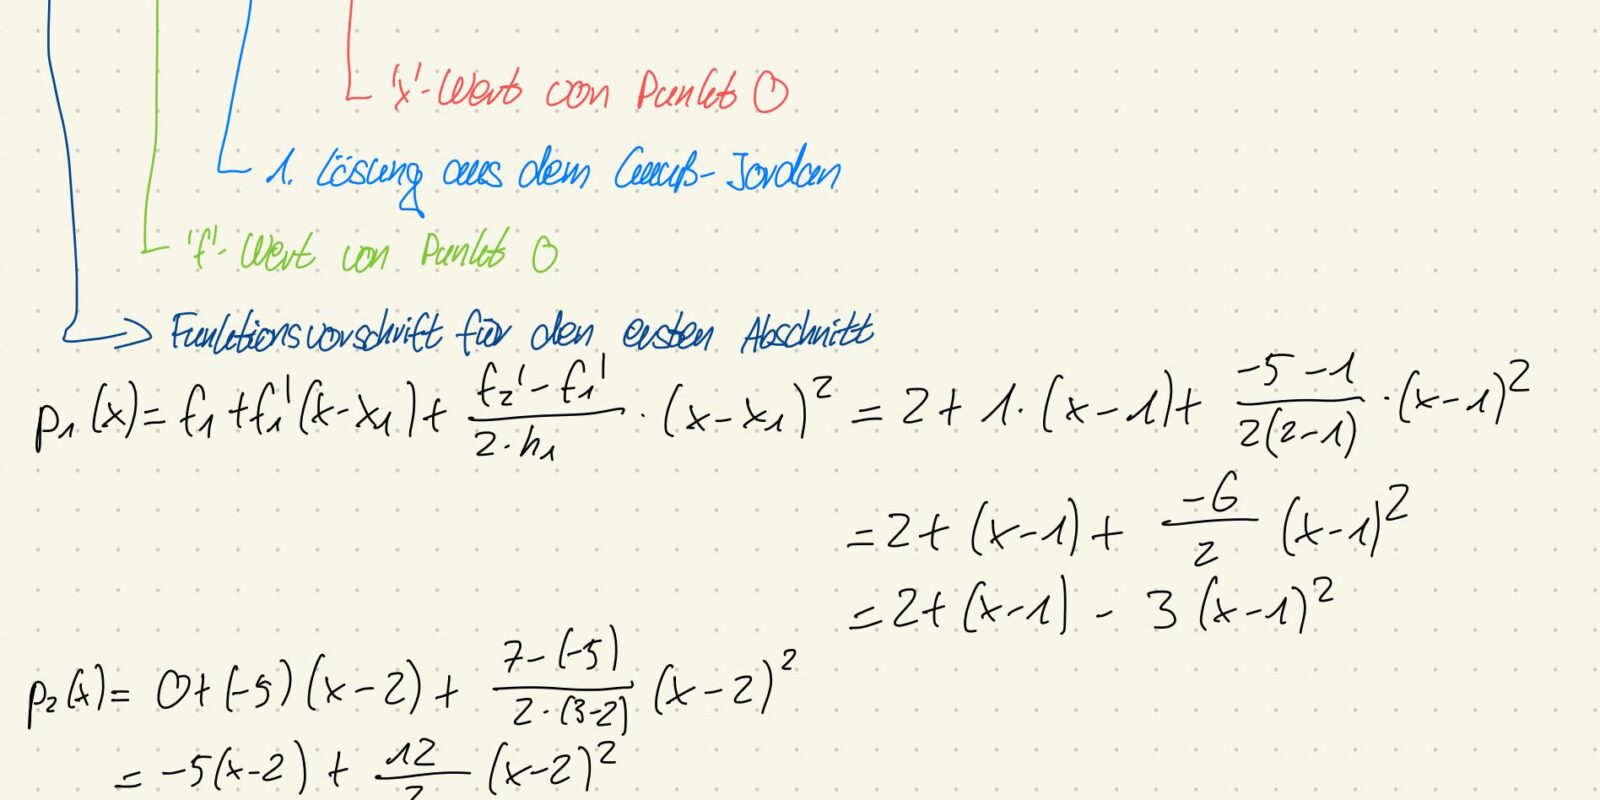 'x'-Wert von Punkt 0
1. Lösung aus dem Gauß-Jordan
'f'-Wert von Punkt 0
Funktionsvorschrift für den ersten Abschnitt
p₁(x)= f₁+f₁'(x-x₁)+ (f₂'-f₁')/(2·h₁) · (x-x₁)² = 2+1·(x-1)+ (-5-1)/(2(2-1)) ·(x-1)²
=2+(x-1)+ (-6)/2 (x-1)²
=2+(x-1) - 3(x-1)²
p₂(x)= 0+(-5)(x-2)+ (7-(-5))/(2·(3-2)) (x-2)²
= -5(x-2) + 12/2 (x-2)²